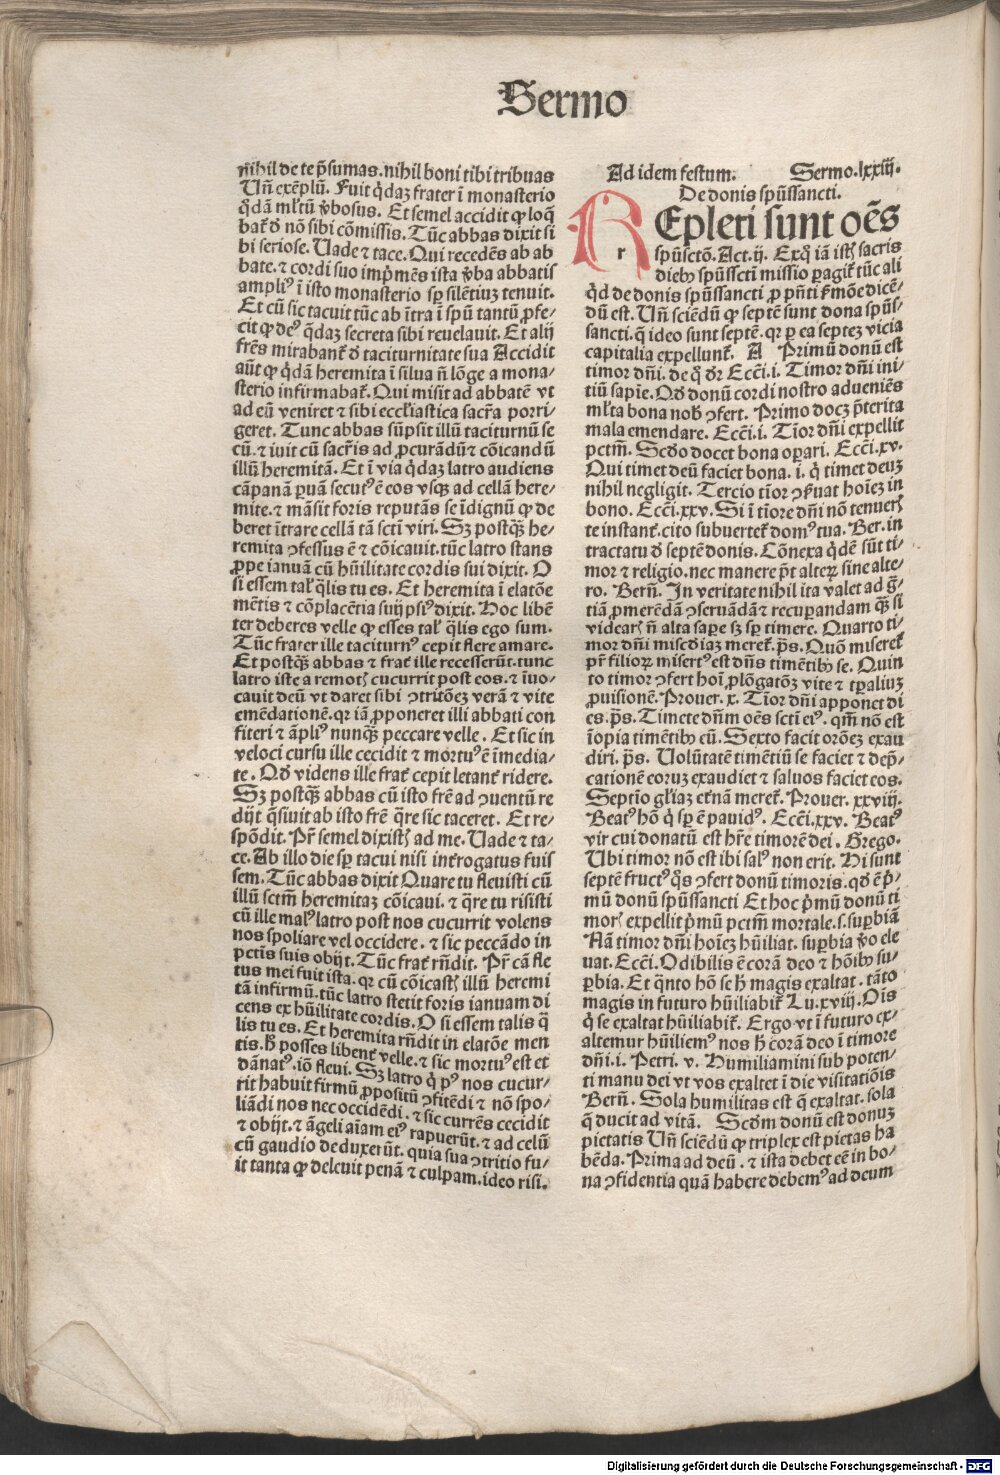 Sermo
nihil de te p̃sumas. nihil boni tibi tribuas
Uñ exẽplũ. Fuit q̃daz frater ĩ monasterio
q̃dã ml̃tũ ꝟbosus. Et semel accidit ꝙ loq̃
bat᷑ ꝺ nõ sibi cõmissis. Tũc abbas dixit si
bi seriose. Uade ⁊ tace. Qui recedẽs ab ab
bate. ⁊ cordi suo imp̃mẽs ista ꝟba abbatis
ampliꝰ ĩ isto monasterio sp̱ silẽtiuꝫ tenuit.
Et cũ sic tacuit tũc ab ĩtra ĩ spũ tantũ ꝓfe/
cit ꝙ deꝰ q̃daꝫ secreta sibi reuelauit. Et alij
frẽs mirabant᷑ ꝺ taciturnitate sua Accidit
aũt ꝙ q̃dã heremita ĩ silua ñ lõge a mona/
sterio infirmabat᷑. Qui misit ad abbatẽ vt
ad eũ veniret ⁊ sibi eccl̃iastica sacr̃a porri/
geret. Tunc abbas sũpsit illũ taciturnũ se
cũ. ⁊ iuit cũ sacr̃is ad ꝓcurãdũ ⁊ cõicandũ
illũ heremitã. Et ĩ via q̃daꝫ latro audiens
cãpanã ꝑuã secutꝰ ẽ eos vsqꝫ ad cellã here/
mite. ⁊ mãsit foris reputãs se ĩdignũ ꝙ de
beret ĩtrare cellã tã scti viri. Sꝫ postq̃ꝫ he/
remita ꝯfessus ẽ ⁊ cõicauit. tũc latro stans
ꝓpe ianuã cũ hũilitate cordis sui dixit. O
si essem tal᷑ q̃lis tu es. Et heremita ĩ elatõe
mẽtis ⁊ cõplacẽtia suijpsiꝰ dixit. Hoc libẽ
ter deberes velle ꝙ esses tal᷑ q̃lis ego sum.
Tũc frater ille taciturnꝰ cepit flere amare.
Et postq̃ꝫ abbas ⁊ frat᷑ ille recesserũt. tunc
latro iste a remotꝭ cucurrit post eos. ⁊ ĩuo/
cauit deũ vt daret sibi ꝯtritõeꝫ verã ⁊ vite
emẽdationẽ. qꝛ iã ꝓponeret illi abbati con
fiteri ⁊ ãpliꝰ nunq̃ꝫ peccare velle. Et sic in
veloci cursu ille cecidit ⁊ mortuꝰ ẽ ĩmedia/
te. Qð videns ille frat᷑ cepit letant᷑ ridere.
Sꝫ postq̃ꝫ abbas cũ isto frẽ ad ꝯuentũ re
dijt q̃siuit ab isto frẽ q̃re sic taceret. Et re/
spõdit. Pr̃ semel dixistꝭ ad me. Uade ⁊ ta/
ce. Ab illo die sp̱ tacui nisi int᷑rogatus fuis
sem. Tũc abbas dixit Quare tu fleuisti cũ
illũ sctm̃ heremitaꝫ cõicaui. ⁊ q̃re tu risisti
cũ ille malꝰ latro post nos cucurrit volens
nos spoliare vel occidere. ⁊ sic peccãdo in
pctis suis obijt. Tũc frat᷑ rñdit. Pr̃ cã fle
tus mei fuit ista. qꝛ cũ cõicastꝭ illũ heremi
tã infirmũ. tũc latro stetit foris ianuam di
cens ex hũilitate cordis. O si essem talis q̃
lis tu es. Et heremita rñdit in elatõe men
tis. hͦ posses libent᷑ velle. ⁊ sic mortuꝰ est et
dãnatꝰ. iõ fleui. Sꝫ latro q̃ pꝰ nos cucur/
rit habuit firmũ ꝓpositũ ꝯfitẽdi ⁊ nõ spo/
liãdi nos nec occidẽdi. ⁊ sic currẽs cecidit
⁊ obijt. ⁊ ãgeli aĩam eiꝰ rapuerũt. ⁊ ad celũ
cũ gaudio deduxerũt. quia sua ꝯtritio fu/
it tanta ꝙ deleuit penã ⁊ culpam. ideo risi.
Ad idem festum. Sermo. lxxiij.
De donis spũssancti.
REpleti sunt oẽs
r spũsctõ. Act. ij. Exq̃ iã istꝭ sacris
diebꝰ spũsscti missio ꝑagit᷑ tũc ali
q̃d de donis spũssancti ꝓ pñti ẽmõe dicẽ/
dũ est. Uñ sciẽdũ ꝙ septẽ sunt dona spũs/
sancti. q̃ ideo sunt septẽ. qꝛ ꝑ ea septeꝫ vicia
capitalia expellunt᷑. A Primũ donũ est
timor dñi. de q̃ dr̃ Ecc̃i. i. Timor dñi ini/
tiũ sapĩe. Qð donũ cordi nostro adueniẽs
ml̃ta bona nobꝭ ꝯfert. Primo docꝫ p̃terita
mala emendare. Ecc̃i. i. Tĩor dñi expellit
pctm̃. Scðo docet bona oꝑari. Ecc̃i. xv.
Qui timet deũ faciet bona. i. q̃ timet deuꝫ
nihil negligit. Tercio tĩor ꝯẜuat hoĩeꝫ in
bono. Ecc̃i. xxv. Si ĩ tĩore dñi nõ tenuerꝭ
te instant᷑. cito subuertet᷑ domꝰ tua. Ber. in
tractatu ꝺ septẽ donis. Cõnexa q̃dẽ sũt ti/
mor ⁊ religio. nec manere põt alterꝫ sine alte/
ro. Berñ. In veritate nihil ita valet ad g̃/
tiã ꝓmerẽdã ꝯseruãdã ⁊ recuꝑandam q̃ꝫ si
videarꝭ ñ alta saꝑe sꝫ sp̱ timere. Quarto ti/
mor dñi misc̃diaꝫ meret᷑. p̃s. Quõ miseret᷑
pr̃ filioꝝ misertꝰ est dñs timẽtibꝰ se. Quin
to timor ꝯfert hoĩ ꝓlõgatõꝫ vite ⁊ tꝑaliuꝫ
ꝓuisionẽ. Prouer. x. Tĩor dñi apponet di
es. p̃s. Timete dñm oẽs scti eiꝰ. qm̃ nõ est
ĩopia timẽtibꝰ eũ. Sexto facit orõeꝫ exau
diri. p̃s. Uolũtatẽ timẽtiũ se faciet ⁊ dep̃/
cationẽ eoruꝫ exaudiet ⁊ saluos faciet eos.
Septio gl̃iaꝫ et᷑nã meret᷑. Prouer. xxviij.
Beatꝰ hõ q̃ sp̱ ẽ pauidꝰ. Ecc̃i. xxv. Beatꝰ
vir cui donatũ est hr̃e timorẽ dei. Grego.
Ubi timor nõ est ibi salꝰ non erit. Hi sunt
septẽ fructꝰ q̃s ꝯfert donũ timoris. qð ẽ p̃/
mũ donũ spũssancti Et hoc p̃mũ donũ ti
morꝭ expellit p̃mũ pctm̃ mortale. s. suꝑbiã
Nã timor dñi hoĩeꝫ hũiliat. suꝑbia ꝟo ele
uat. Ecc̃i. Odibilis ẽ corã deo ⁊ hõibꝰ su/
ꝑbia. Et q̃nto hõ se hͦ magis exaltat. tãto
magis in futuro hũiliabit᷑ Lu. xviij. Oĩs
q̃ se exaltat hũiliabit᷑. Ergo vt ĩ futuro ex/
altemur hũiliemꝰ nos hͦ corã deo ĩ timore
dñi. i. Petri. v. Humiliamini sub poten/
ti manu dei vt vos exaltet ĩ die visitatiõis
Berñ. Sola humilitas est q̃ exaltat. sola
q̃ ducit ad vitã. Scðm donũ est donuꝫ
pietatis Uñ sciẽdũ ꝙ triplex est pietas ha
bẽda. Prima ad deũ. ⁊ ista debet eẽ in bo/
na ꝯfidentia quã habere debemꝰ ad deum
Digitalisierung gefördert durch die Deutsche Forschungsgemeinschaft - DFG